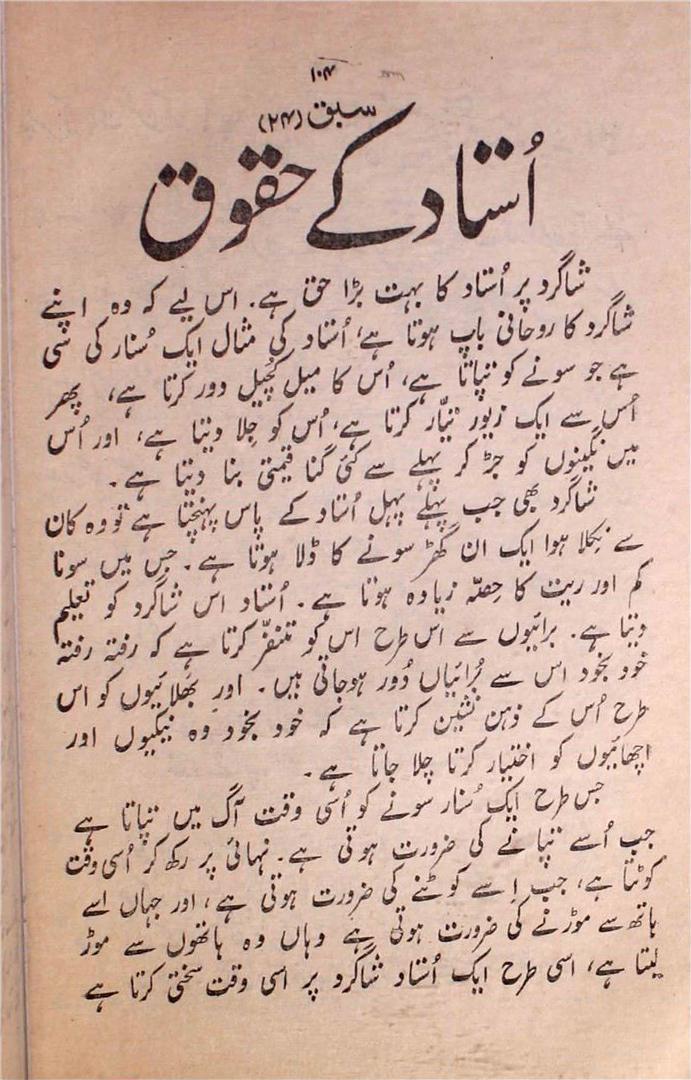 ۱۰۴
سبق (۲۴)
اُستاد کے حقوق
شاگرد پر اُستاد کا بہت بڑا حق ہے۔ اس لیے کہ وہ اپنے
شاگرد کا روحانی باپ ہوتا ہے، اُستاد کی مثال ایک سُنار کی سی
ہے جو سونے کو تپاتا ہے، اُس کا میل کچیل دور کرتا ہے، پھر
اُس سے ایک زیور تیّار کرتا ہے، اُس کو جِلا دیتا ہے، اور اُس
میں نگینوں کو جڑ کر پہلے سے کئی گنا قیمتی بنا دیتا ہے۔
شاگرد بھی جب پہلے پہل اُستاد کے پاس پہنچتا ہے تو وہ کان
سے نِکلا ہوا ایک ان گھڑ سونے کا ڈلا ہوتا ہے۔ جس میں سونا
کم اور ریت کا حِصّہ زیادہ ہوتا ہے۔ اُستاد اس شاگرد کو تعلیم
دیتا ہے۔ برائیوں سے اس طرح اس کو متنفّر کرتا ہے کہ رفتہ رفتہ
خود بخود اس سے بُرائیاں دُور ہوجاتی ہیں۔ اور بھَلائیوں کو اس
طرح اُس کے ذہن نشین کرتا ہے کہ خود بخود وہ نیکیوں اور
اچھائیوں کو اختیار کرتا چلا جاتا ہے۔
جس طرح ایک سُنار سونے کو اُسی وقت آگ میں تپاتا ہے
جب اُسے تپانے کی ضرورت ہوتی ہے۔ نہائی پر رکھ کر اُسی وقت
کوٹتا ہے، جب اِسے کوٹنے کی ضرورت ہوتی ہے، اور جہاں اسے
ہاتھ سے موڑنے کی ضرورت ہوتی ہے وہاں وہ ہاتھوں سے موڑ
لیتا ہے، اسی طرح ایک اُستاد شاگرد پر اسی وقت سختی کرتا ہے